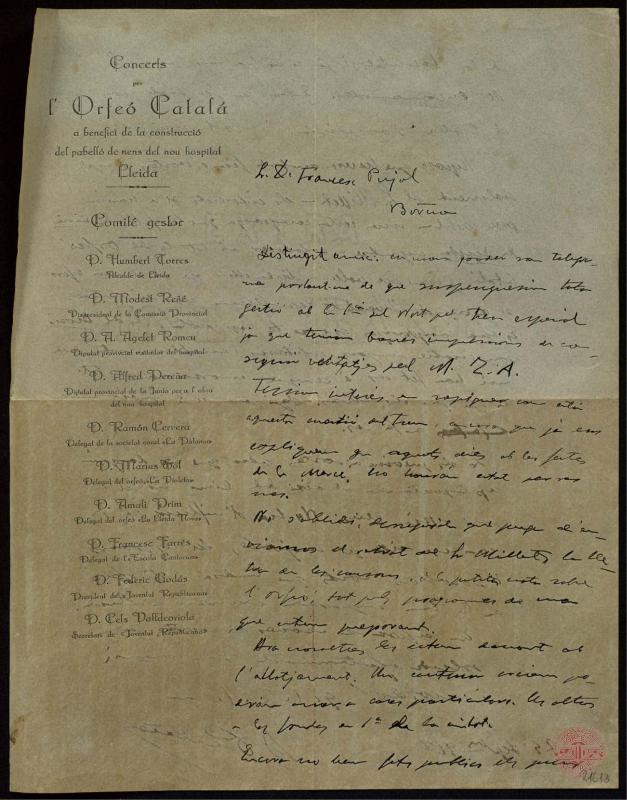 Concerts
per
l'Orfeó Català
a benefici de la construcció
del pabelló de nens del nou hospital
Lleida
Comité gestor
D. Humbert Torres
Alcalde de Lleida
D. Modest Reñé
Vicepresident de la Comissió Provincial
D. A. Agelet Romeu
Diputat provincial visitador del hospital
D. Alfred Pereña
Diputat provincial de la Junta per a l'obra
del nou hospital
D. Ramón Cervera
Delegat de la societat coral «La Paloma»
D. Marius Bol
Delegat del orfeó «La Violeta»
D. Amali Prim
Delegat del orfeó «La Lleida Nova»
D. Francesc Farrés
Delegat de la «Escola Cantorum»
D. Federic Godás
President de «Joventut Republicana»
D. Cels Valldeoriola
Secretari de «Joventut Republicana»
S. D. Francesc Pujol
Distingit amic: en mon poder son telegra-
ma portantme de que suspenguessim tota
gestió ab la Cia del Nort pel tren especial
ja que tenim bones impressions de con-
seguir ventatjes pel M. Z. A.
Tenim interés en sapiguer com está
aquesta cuestió del tren, encara que ja ens
expliquem que aquets dies ab les festes
de la Mercé, no hauran estat per res
mes.
No s'oblidi, desseguida que puga d'en-
viarnos el retrat de'n Millet, la lle-
tra de les cansons, i la petita nota sobre
l'orfeó, tot pels programes de ma
que estem preparant.
Ara nosaltres les estem donant ab
l'allotjament. Un centenar aniran
a cases particulars. Els altres
a les fondes de la ciutat.
Encara no hem fets publics els preus
21613